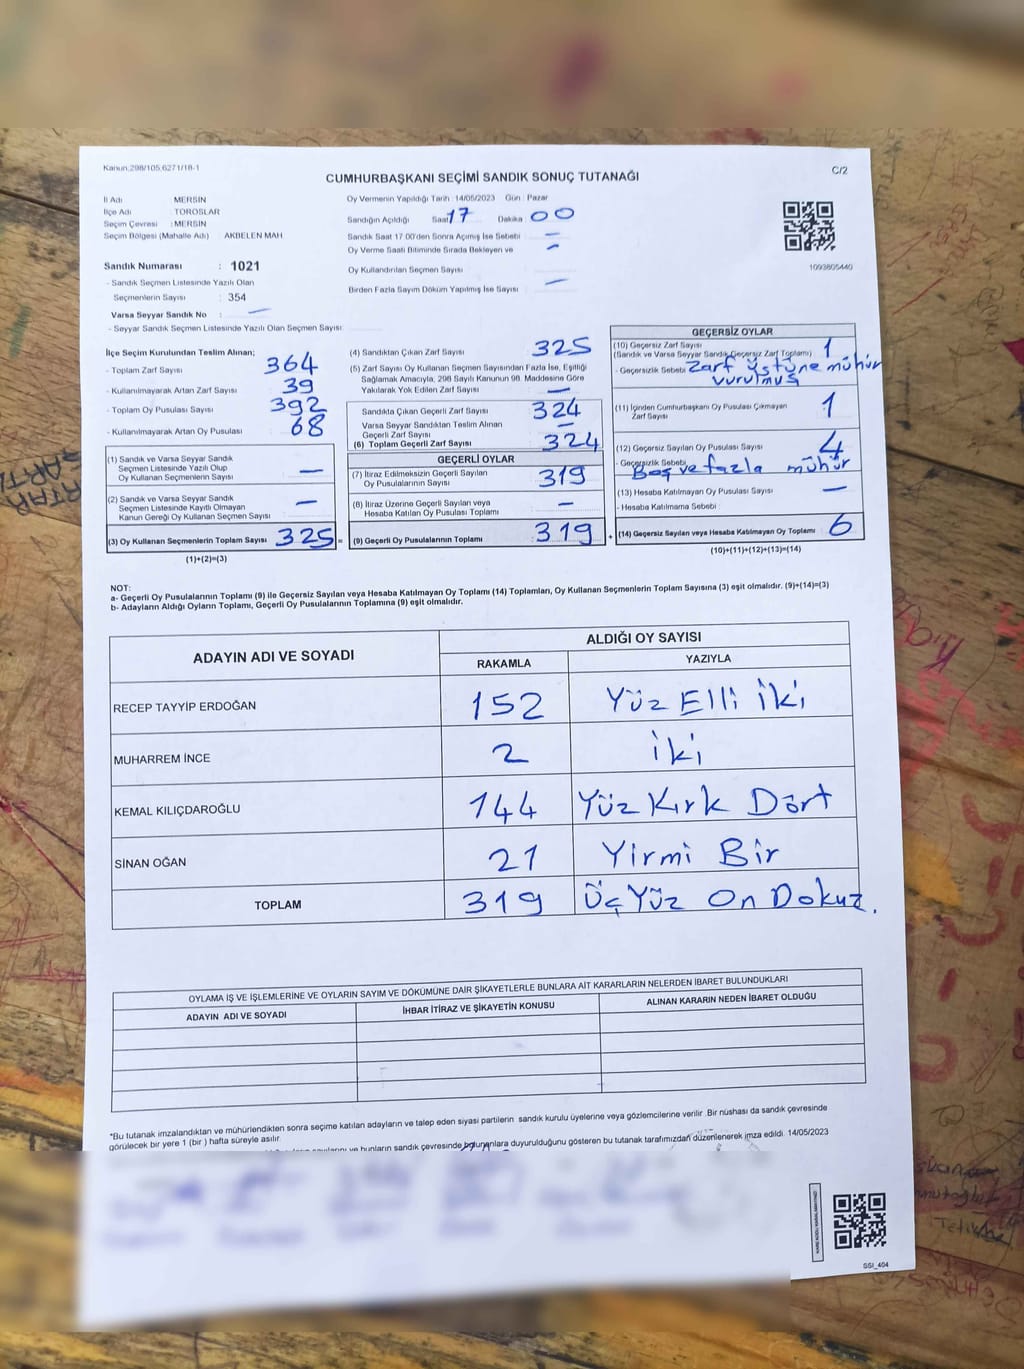 Kanun:298/105,6271/18-1
C/2
CUMHURBAŞKANI SEÇİMİ SANDIK SONUÇ TUTANAĞI
İl Adı : MERSİN
İlçe Adı : TOROSLAR
Seçim Çevresi : MERSİN
Seçim Bölgesi (Mahalle Adı) : AKBELEN MAH
Sandık Numarası : 1021
- Sandık Seçmen Listesinde Yazılı Olan
Seçmenlerin Sayısı : 354
Varsa Seyyar Sandık No : —
- Seyyar Sandık Seçmen Listesinde Yazılı Olan Seçmen Sayısı:
Oy Vermenin Yapıldığı Tarih : 14/05/2023 Gün : Pazar
Sandığın Açıldığı Saat 17 Dakika : 00
Sandık Saat 17:00'den Sonra Açımış İse Sebebi : —
Oy Verme Saati Bitiminde Sırada Bekleyen ve —
Oy Kullandırılan Seçmen Sayısı
Birden Fazla Sayım Döküm Yapılmış İse Sayısı : —
1093805440
İlçe Seçim Kurulundan Teslim Alınan;
- Toplam Zarf Sayısı : 364
- Kullanılmayarak Artan Zarf Sayısı : 39
- Toplam Oy Pusulası Sayısı : 392
- Kullanılmayarak Artan Oy Pusulası : 68
(1) Sandık ve Varsa Seyyar Sandık
Seçmen Listesinde Yazılı Olup
Oy Kullanan Seçmenlerin Sayısı : —
(2) Sandık ve Varsa Seyyar Sandık
Seçmen Listesinde Kayıtlı Olmayan
Kanun Gereği Oy Kullanan Seçmen Sayısı : —
(3) Oy Kullanan Seçmenlerin Toplam Sayısı : 325 =
(1)+(2)=(3)
(4) Sandıktan Çıkan Zarf Sayısı : 325
(5) Zarf Sayısı Oy Kullanan Seçmen Sayısından Fazla İse, Eşitliği
Sağlamak Amacıyla, 298 Sayılı Kanunun 98. Maddesine Göre
Yakılarak Yok Edilen Zarf Sayısı : —
Sandıkta Çıkan Geçerli Zarf Sayısı : 324
Varsa Seyyar Sandıktan Teslim Alınan
Geçerli Zarf Sayısı : —
(6) Toplam Geçerli Zarf Sayısı : 324
GEÇERLİ OYLAR
(7) İtiraz Edilmeksizin Geçerli Sayılan
Oy Pusulalarının Sayısı : 319
(8) İtiraz Üzerine Geçerli Sayılan veya
Hesaba Katılan Oy Pusulası Toplamı : —
(9) Geçerli Oy Pusulalarının Toplamı : 319 +
GEÇERSİZ OYLAR
(10) Geçersiz Zarf Sayısı : 1
(Sandık ve Varsa Seyyar Sandık Geçersiz Zarf Toplamı)
- Geçersizlik Sebebi : Zarf üstüne mühür
vurulmuş
(11) İçinden Cumhurbaşkanı Oy Pusulası Çıkmayan
Zarf Sayısı : 1
(12) Geçersiz Sayılan Oy Pusulası Sayısı : 4
- Geçersizlik Sebebi : Boş ve fazla mühür
(13) Hesaba Katılmayan Oy Pusulası Sayısı : —
- Hesaba Katılmama Sebebi :
(14) Geçersiz Sayılan veya Hesaba Katılmayan Oy Toplamı : 6
(10)+(11)+(12)+(13)=(14)
NOT:
a- Geçerli Oy Pusulalarının Toplamı (9) ile Geçersiz Sayılan veya Hesaba Katılmayan Oy Toplamı (14) Toplamları, Oy Kullanan Seçmenlerin Toplam Sayısına (3) eşit olmalıdır. (9)+(14)=(3)
b- Adayların Aldığı Oyların Toplamı, Geçerli Oy Pusulalarının Toplamına (9) eşit olmalıdır.
ADAYIN ADI VE SOYADI
ALDIĞI OY SAYISI
RAKAMLA YAZIYLA
RECEP TAYYİP ERDOĞAN 152 Yüz Elli İki
MUHARREM İNCE 2 İki
KEMAL KILIÇDAROĞLU 144 Yüz Kırk Dört
SİNAN OĞAN 21 Yirmi Bir
TOPLAM 319 Üç Yüz On Dokuz.
OYLAMA İŞ VE İŞLEMLERİNE VE OYLARIN SAYIM VE DÖKÜMÜNE DAİR ŞİKAYETLERLE BUNLARA AİT KARARLARIN NELERDEN İBARET BULUNDUKLARI
ADAYIN ADI VE SOYADI İHBAR İTİRAZ VE ŞİKAYETİN KONUSU ALINAN KARARIN NEDEN İBARET OLDUĞU
*Bu tutanak imzalandıktan ve mühürlendikten sonra seçime katılan adayların ve talep eden siyasi partilerin sandık kurulu üyelerine veya gözlemcilerine verilir .Bir nüshası da sandık çevresinde
görülecek bir yere 1 (bir ) hafta süreyle asılır.
ve bunların sandık çevresinde bulunanlara duyurulduğunu gösteren bu tutanak tarafımızdan düzenlenerek imza edildi. 14/05/2023
SSI_404